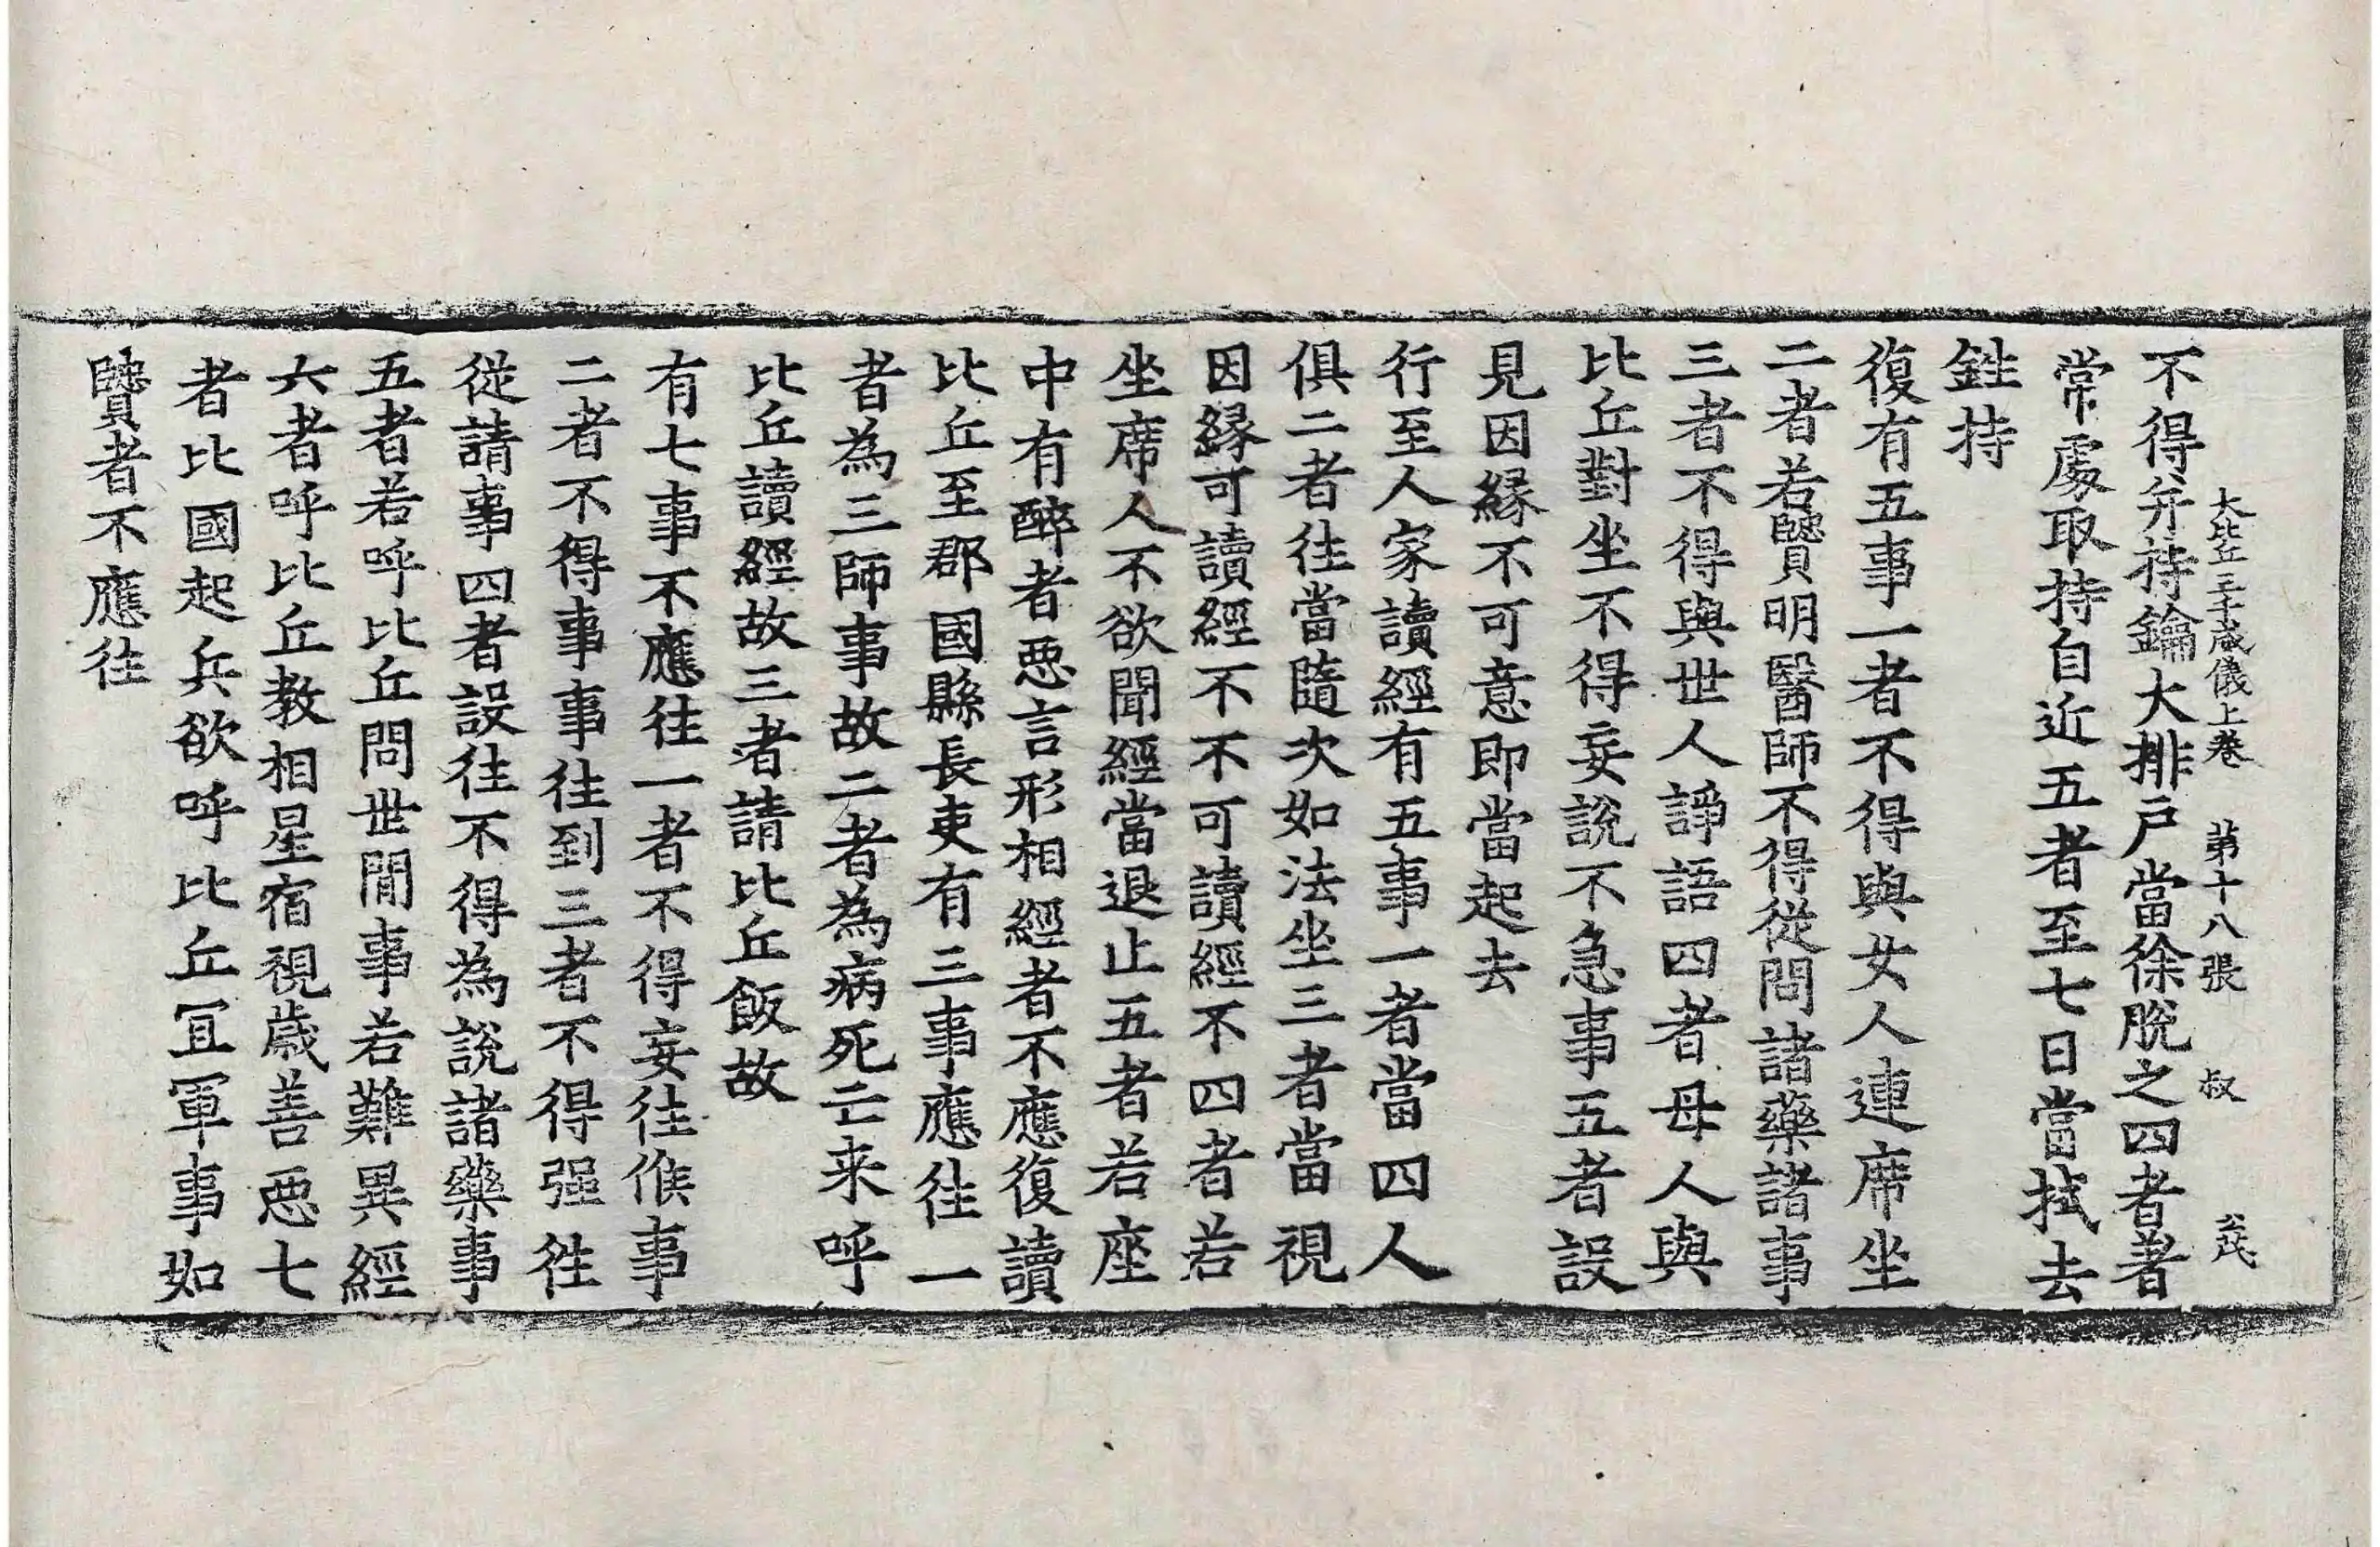 大比丘三千威儀上卷 第十八張 叔 公茂
不得弁持鑰大排戶當徐脫之四者著
常處取持自近五者至七日當拭去
鉎持
復有五事一者不得與女人連席坐
二者若賢明醫師不得從問諸藥諸事
三者不得與世人諍語四者母人與
比丘對坐不得妄說不急事五者設
見因緣不可意即當起去
行至人家讀經有五事一者當四人
俱二者往當隨次如法坐三者當視
因緣可讀經不不可讀經不四者若
坐席人不欲聞經當退止五者若座
中有醉者惡言形相經者不應復讀
比丘至郡國縣長吏有三事應往一
者為三師事故二者為病死亡来呼
比丘讀經故三者請比丘飯故
有七事不應往一者不得妄往候事
二者不得事事往到三者不得强往
從請事四者設往不得為說諸藥事
五者若呼比丘問世閒事若難異經
六者呼比丘教相星宿視歲善惡七
者比國起兵欲呼比丘冝軍事如
賢者不應往